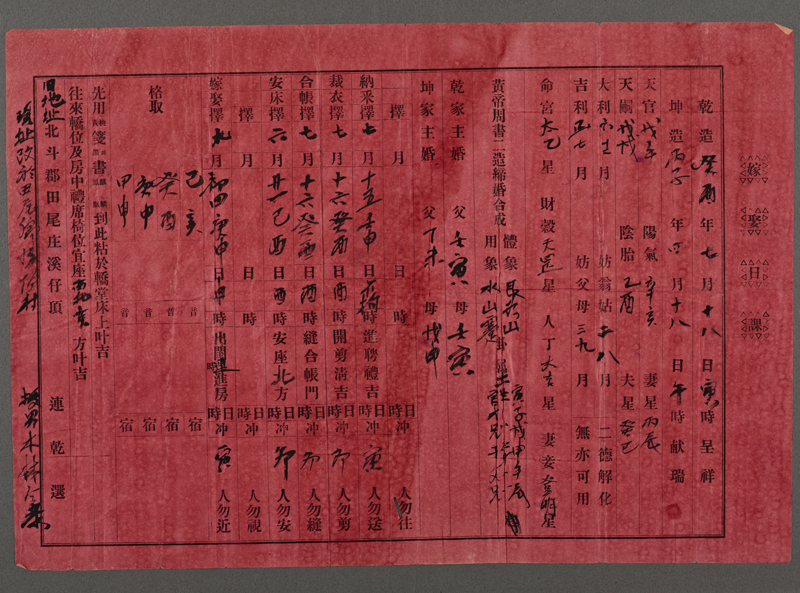 嫁娶日課
乾造癸酉年七月十八日寅時呈祥
坤造丙子年四月十八日午時献瑞
天官戊午 陽氣辛亥 妻星丙辰
天嗣戊戌 陰胎乙酉 夫星癸巳
大利不生月 妨翁姑二八月 二德解化
吉利正七月 妨父母三九月 無亦可用
命宮太乙星 財穀天罡星 人丁太吉星 妻妾登明星
黃帝周書二造締婚合成 體象艮為山 卦
用象水山蹇
乾家主婚 父壬寅 母壬寅
坤家主婚 父丁未 母戊申
擇 月 日 時 日時冲 人勿往
納釆擇七月十五壬申日 時進聘禮吉 日時冲寅人勿送
裁衣擇七月十六癸酉日酉時開剪淸吉 日時冲卯人勿剪
合帳擇七月十六癸酉日酉時縫合帳門 日時冲卯人勿縫
安床擇六月廿一己酉日酉時安座北方 日時冲卯人勿安
擇 月 日 時 日時冲 人勿視
嫁娶擇九月初四庚申日申時出閣進房 日時冲寅人勿近
格取
己亥 音 宿
癸酉 音 宿
庚申 音 宿
甲申 音 宿
先用 箋書 到此粘於轎堂床上叶吉
往來轎位及房中禮席椅位宜座 方叶吉
旧地址北斗郡田尾庄溪仔頂 連乾選
現址改於田尾鄉 村